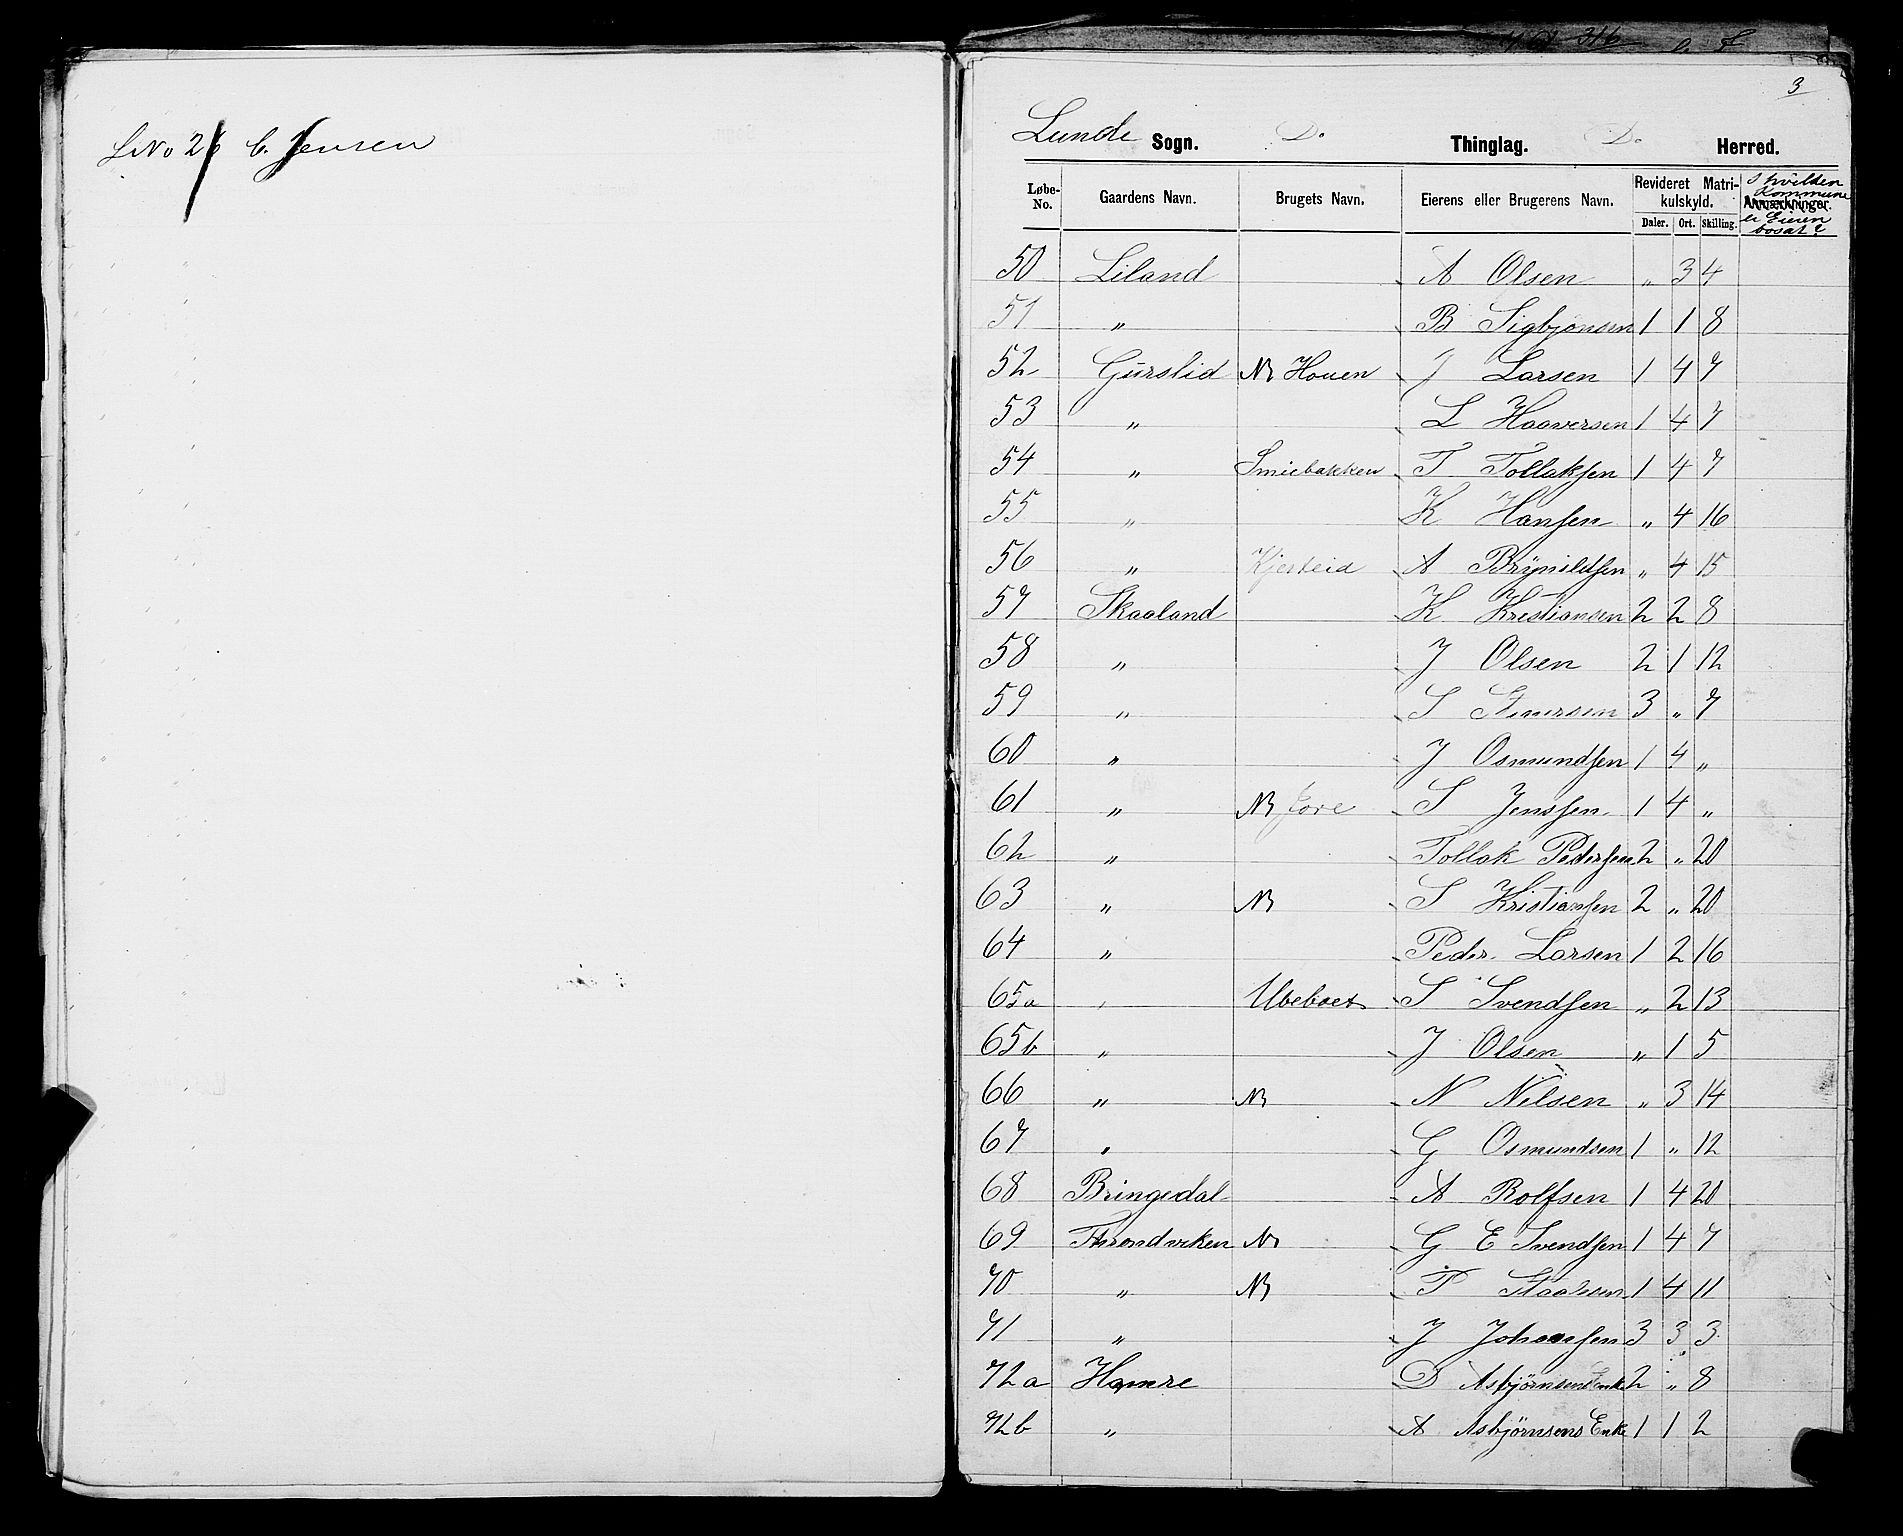 LNo 26 C. Jensen
3
Lunde Sogn. Do Thinglag. Do Herred.
Løbe-No. Gaardens Navn. Brugets Navn. Eierens eller Brugerens Navn. Revideret Matrikulskyld. Daler. Ort. Skilling. Anmærkninger. I hvilken Kommune er Eieren bosat?
50 Liland A Olsen " 3 4
51 " B Sigbjonsen 1 1 8
52 Gurslid NB Houen J Larsen 1 4 7
53 " L Haaversen 1 4 7
54 " Smiebakken T Tollaksen 1 4 7
55 " K Hansen " 4 16
56 " Kjerteid A Brynildsen " 4 15
57 Skaaland K Kristiansen 2 2 8
58 " J Olsen 2 1 12
59 " S 3 " 7
60 " J Osmundsen 1 4 "
61 " NB S Jenssen 1 4 "
62 " Tollak Pedersen 2 " 20
63 " NB S Kristiansen 2 " 20
64 " Peder Larsen 1 2 16
65a " Ubeboet S Svendsen " 2 13
65b " J Olsen " 1 5
66 " NB N Nilsen " 3 14
67 " G Osmundsen 1 " 12
68 Bringedal A Rolfsen 1 4 20
69 Throndviken NB G E Svendsen 1 4 7
70 " NB P Staalesen 1 4 11
71 " J Johansen 3 3 3
72a Hamre D Asbjørnsens Enke 2 " 8
72b " A Asbjørnsens Enke 1 1 2